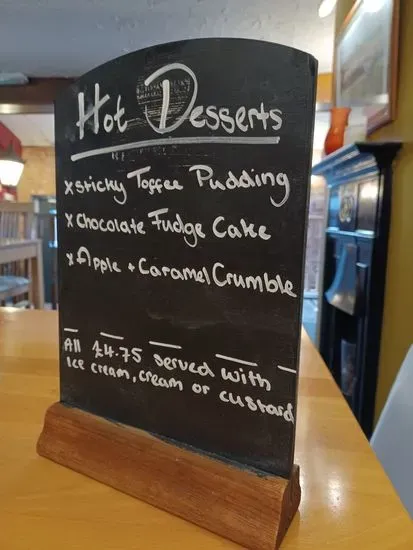 Hot Desserts
x sticky Toffee Pudding
x Chocolate Fudge Cake
x Apple + Caramel Crumble
All £4.75 served with
ice cream, cream or custard